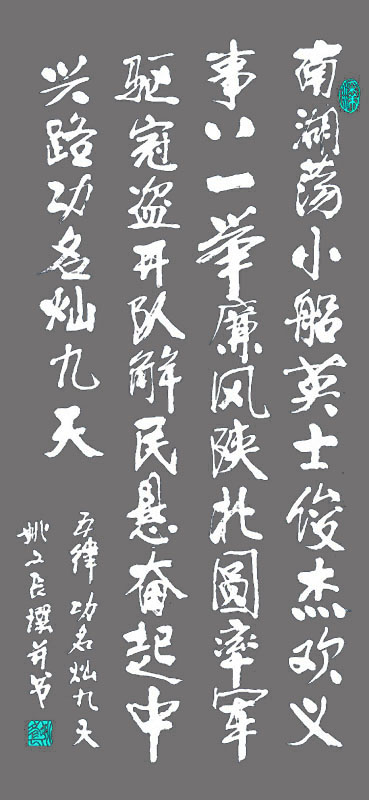 南湖荡小船英士俊杰欢义
事八一举廉风陕北圖率军
驱寇盗开队解民悬奋起中
兴路功名灿九天
五律 功名灿九天
姚文撰并书